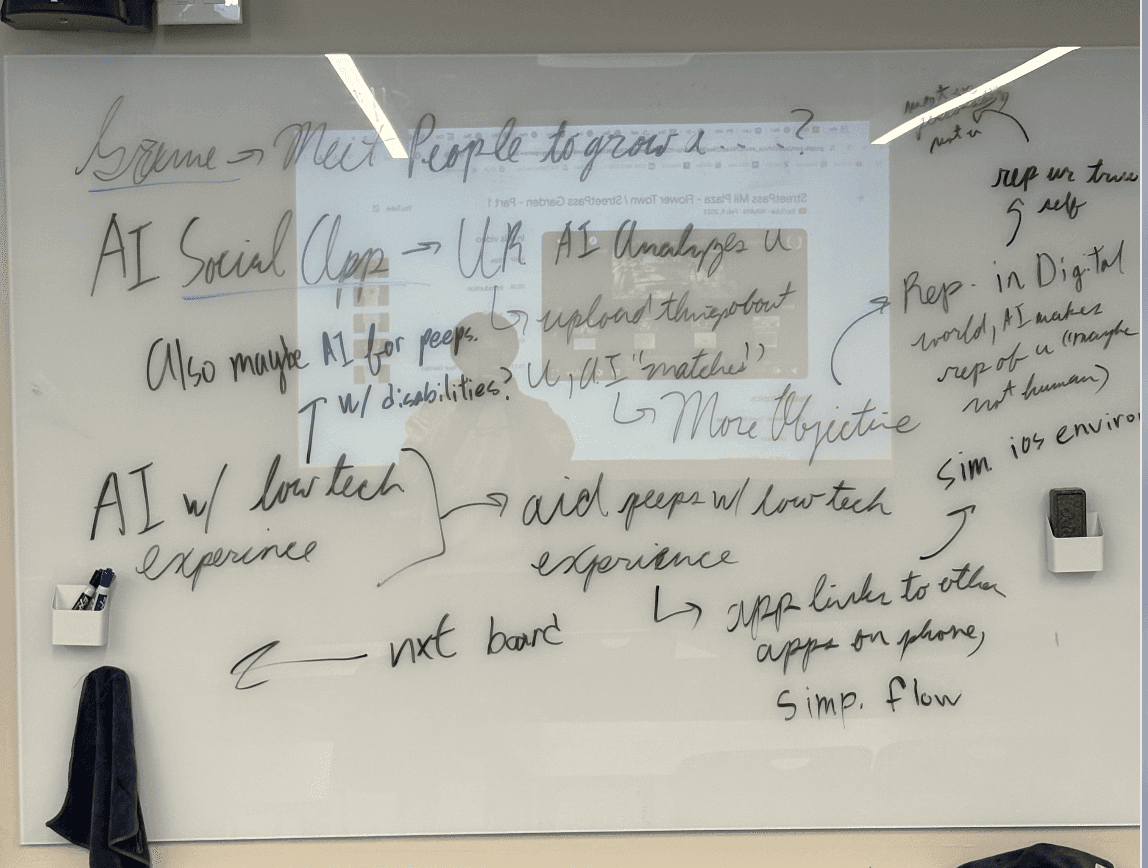 Game → Meet People to grow a.....?
AI Social App → UR AI Analyzes u
↳ upload things about
u, AI "matches"
↳ More Objective
Rep. in Digital
world, AI makes
rep of u (maybe
not human)
rep ur true
self
most
not u
Also maybe AI for peeps.
w/ disabilities?
AI w/ low tech
experince
→ aid peeps w/ low tech
experience
↳ app links to other
apps on phone,
simp. flow
Sim. ios enviro
← nxt board
StreetPass Mii Plaza - Flower Town / StreetPass Garden - Part 1
YouTube